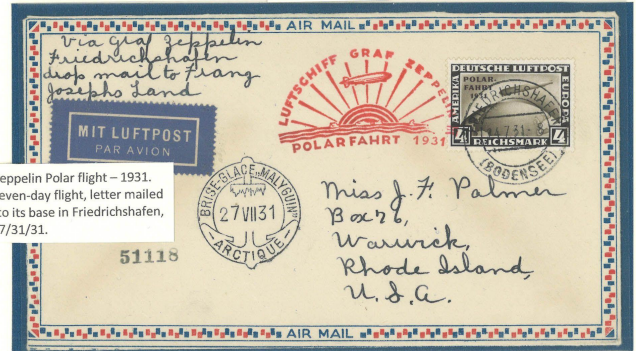 AIR MAIL
Via Graf Zeppelin
Friedrichshafen
drop mail to Franz
Josephs Land
MIT LUFTPOST
PAR AVION
LUFTSCHIFF GRAF ZEPPELIN
POLARFAHRT 1931
DEUTSCHE LUFTPOST
POLAR-
FAHRT
1931
AMERIKA
EUROPA
4 REICHSMARK 4
FRIEDRICHSHAFEN
7.31-8
(BODENSEE)
eppelin Polar flight – 1931.
even-day flight, letter mailed
to its base in Friedrichshafen,
7/31/31.
BRISE-GLACE „MALYGUIN"
27 VII 31
ARCTIQUE
51118
Miss J. F. Palmer
Box 76,
Warwick,
Rhode Island,
U.S.A.
AIR MAIL